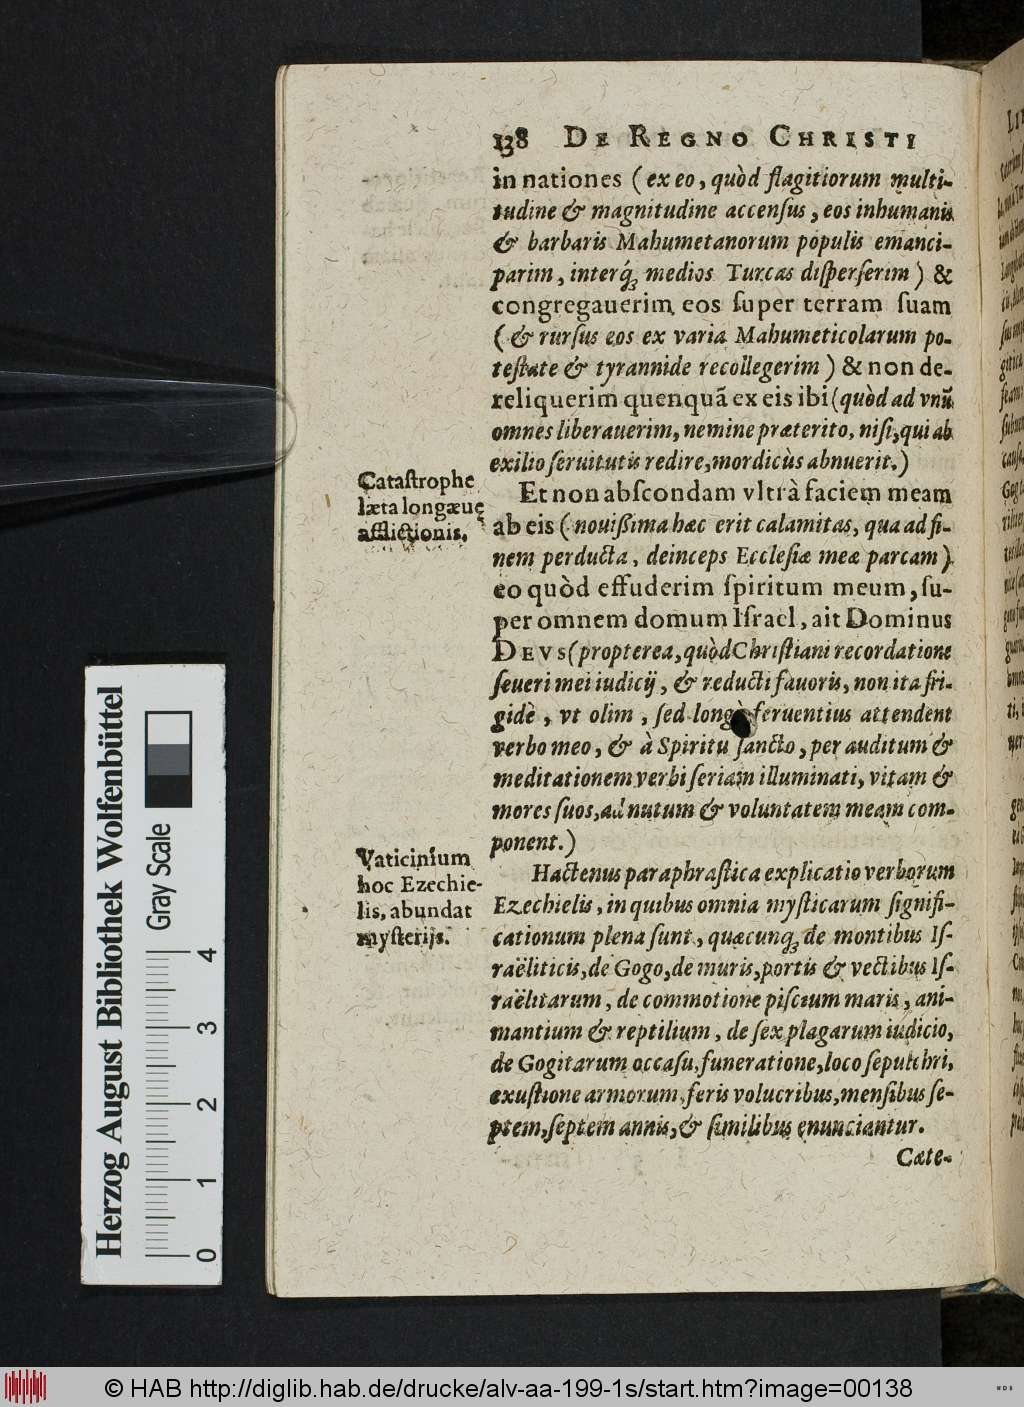 138 DE REGNO CHRISTI
in nationes (ex eo, quòd flagitiorum multi-
tudine & magnitudine accenſus, eos inhumanis
& barbaris Mahumetanorum populis emanci-
parim, interq́ꝫ medios Turcas diſperſerim) &
congregauerim eos ſuper terram ſuam
(& rurſus eos ex varia Mahumeticolarum po-
teſtate & tyrannide recollegerim) & non de-
reliquerim quenquā ex eis ibi (quòd ad vnū
omnes liberauerim, nemine præterito, niſi, qui ab
exilio ſeruitutis redire, mordicùs abnuerit.)
Catastrophe
læta longæuę
afflictionis.
Et non abſcondam vltrà faciem meam
ab eis (nouißima hæc erit calamitas, qua ad fi-
nem perducta, deinceps Eccleſiæ meæ parcam)
eo quòd effuderim ſpiritum meum, ſu-
per omnem domum Iſrael, ait Dominus
DEVS (propterea, quòd Chriſtiani recordatione
ſeueri mei iudicij, & reducti fauoris, non ita fri-
gidè, vt olim, ſed longè feruentius attendent
verbo meo, & à Spiritu ſancto, per auditum &
meditationem verbi ſeriam illuminati, vitam &
mores ſuos, ad nutum & voluntatem meam com-
ponent.)
Vaticinium
hoc Ezechie-
lis, abundat
myſterijs.
Hactenus paraphraſtica explicatio verborum
Ezechielis, in quibus omnia myſticarum ſignifi-
cationum plena ſunt, quæcunqꝫ de montibus Iſ-
raëliticis, de Gogo, de muris, portis & vectibus Iſ-
raëlitarum, de commotione piſcium maris, ani-
mantium & reptilium, de ſex plagarum iudicio,
de Gogitarum occaſu, funeratione, loco ſepulchri,
exuſtione armorum, feris volucribus, menſibus ſe-
ptem, ſeptem annis, & ſimilibus enunciantur.
Cæte-
Herzog August Bibliothek Wolfenbüttel
Gray Scale
0 1 2 3 4
© HAB http://diglib.hab.de/drucke/alv-aa-199-1s/start.htm?image=00138